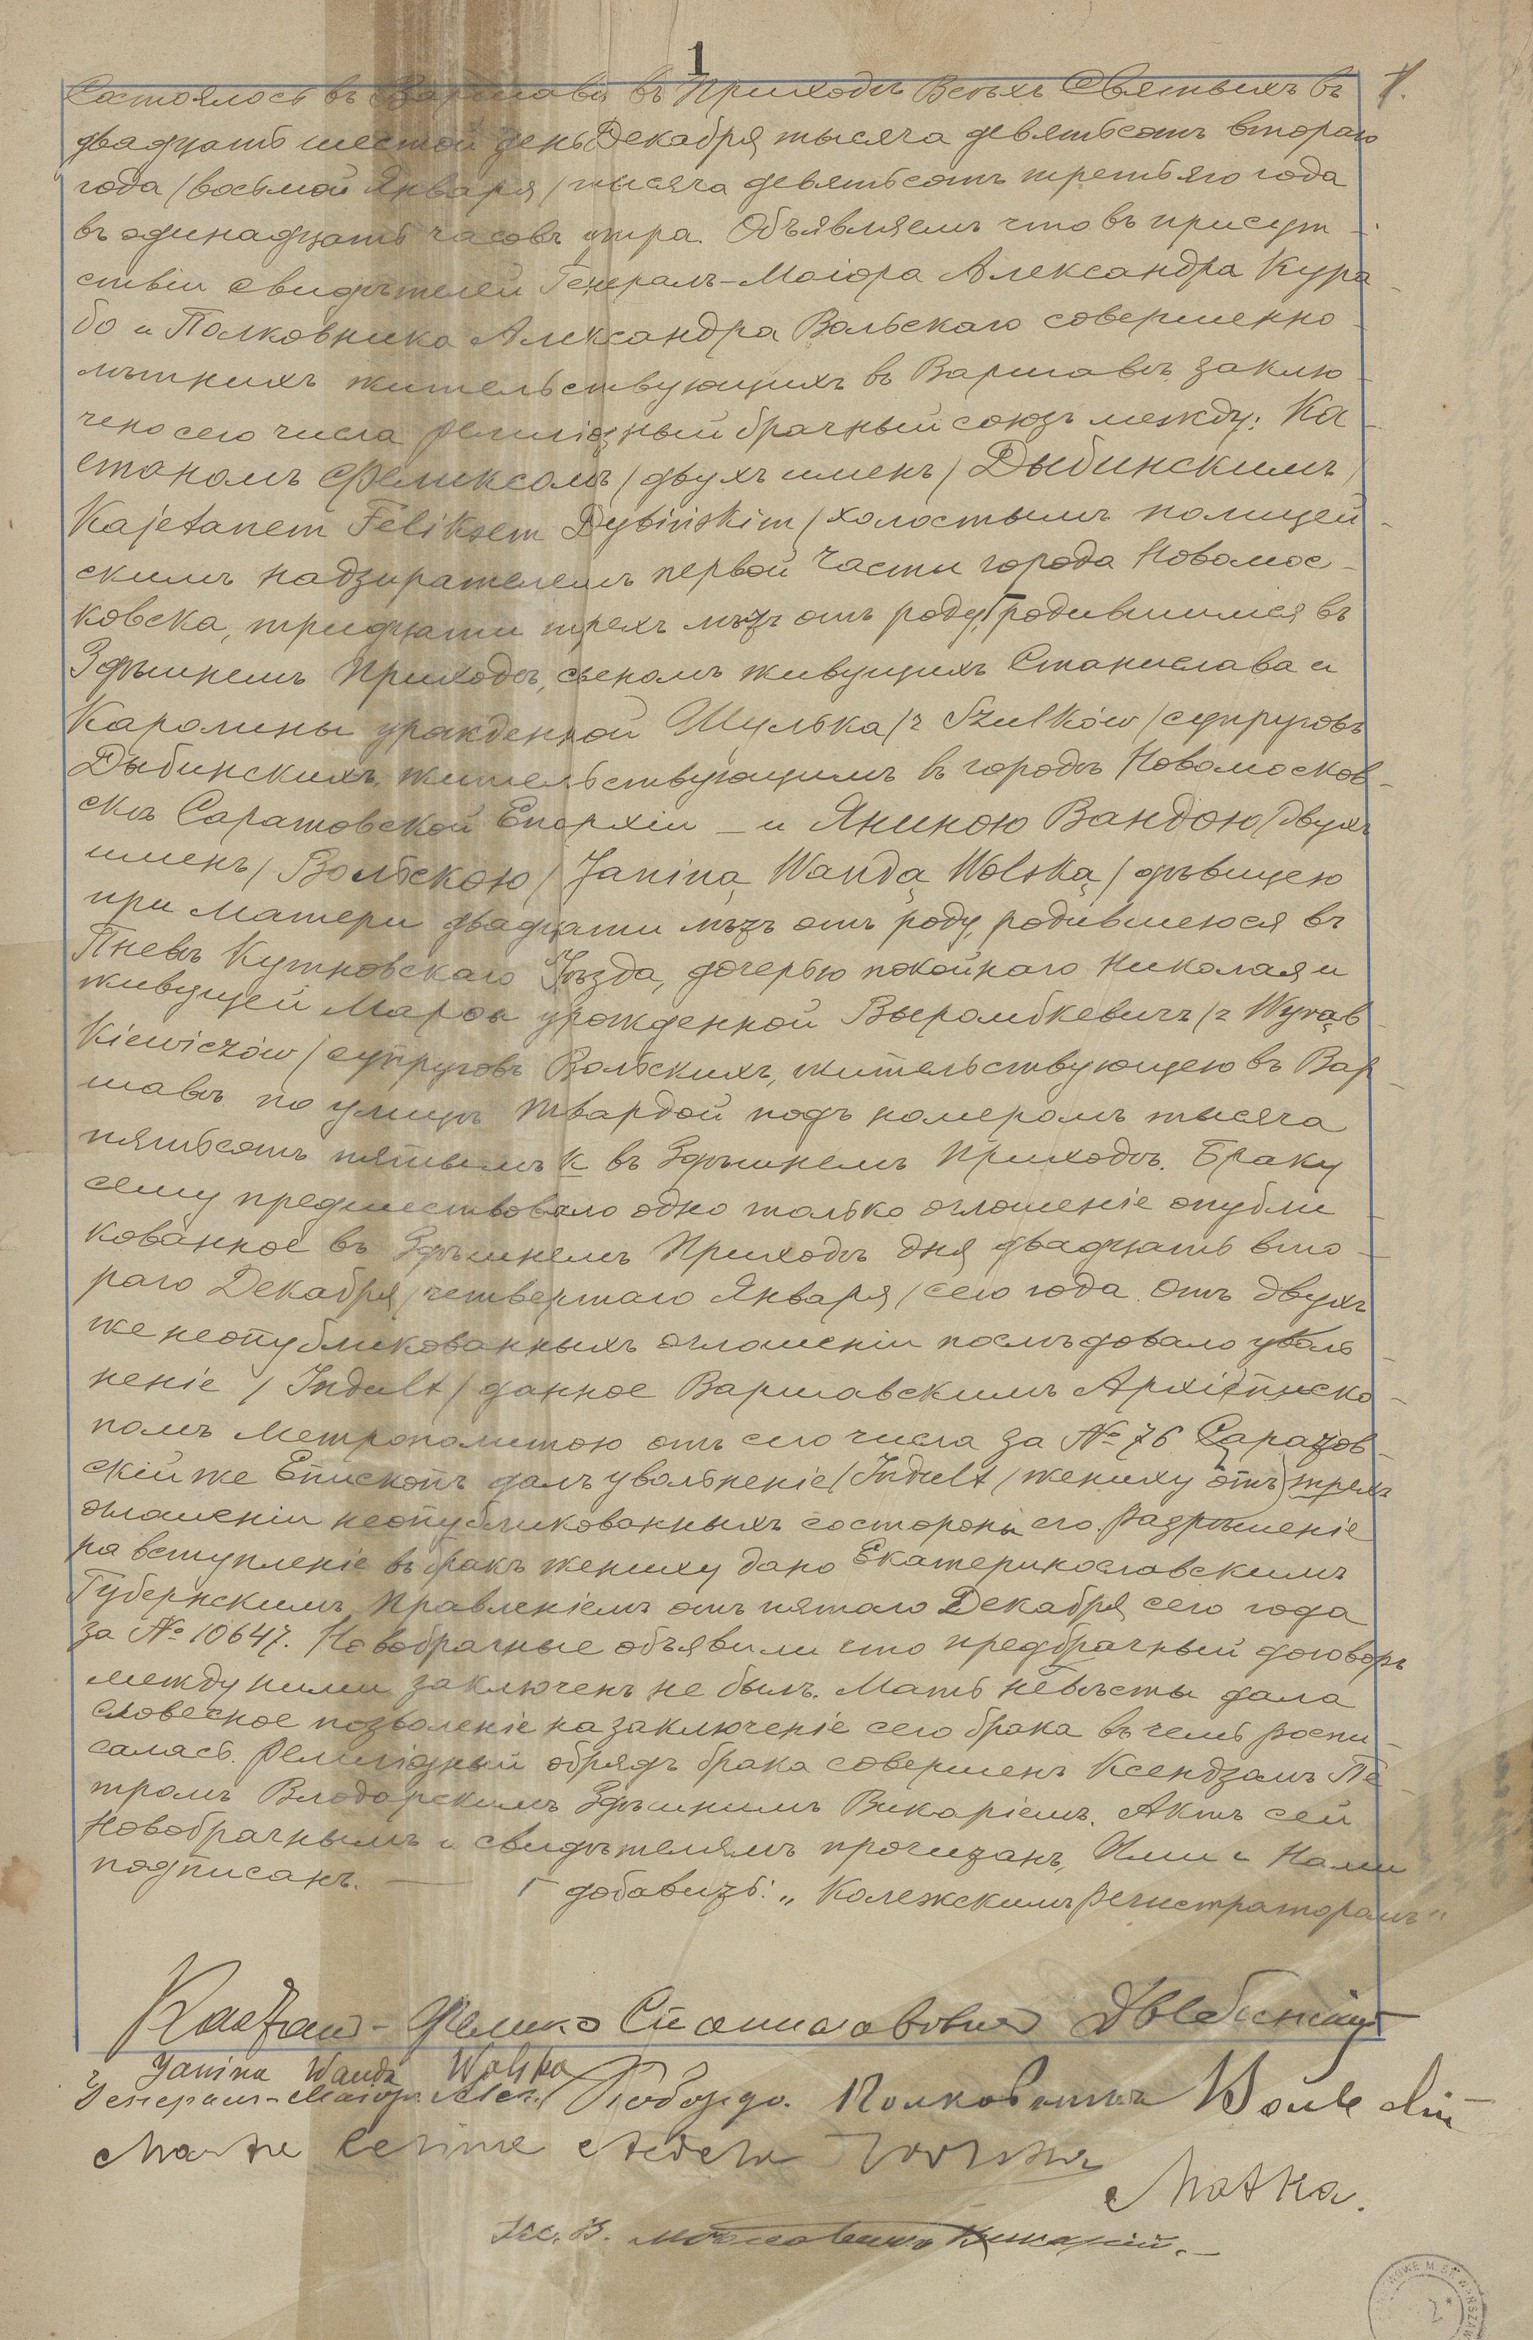 1
1.
Состоялось въ Варшавѣ въ Приходѣ Всѣхъ Святыхъ въ
двадцать шестой день Декабря тысяча девятьсотъ втораго
года /восьмой Января/ тысяча девятьсотъ третьяго года
въ одинадцать часовъ утра. Объявляемъ что въ присут-
ствіи свидѣтелей Генералъ-Маіора Александра Кура-
бо и Полковника Александра Вольскаго совершенно-
лѣтнихъ жительствующихъ въ Варшавѣ заклю-
чено сего числа религіозный брачный союзъ между: Ка-
етаномъ Феликсомъ /двухъ именъ/ Дыбинскимъ/
Kajetanem Feliksem Dybińskim/ холостымъ полицей-
скимъ надзирателемъ первой части города Новомос-
ковска, тридцати трехъ лѣтъ отъ роду,Г родившимся въ
Здѣшнемъ Приходѣ, сыномъ живущихъ Станислава и
Каролины урожденной Шулька /z Szulków/ супруговъ
Дыбинскихъ, жительствующимъ въ городѣ Новомосков-
скѣ Саратовской Епархіи – и Яниною Вандою /двухъ
именъ/ Вольскою /Janiną Wandą Wolską/ дѣвицею
при Матери двадцати лѣтъ отъ роду, родившеюся въ
Пневѣ Кутновскаго Уѣзда, дочерью покойнаго Николая и
живущей Марои урожденной Выромбкевичъ /z Wyrąb-
kiewiczów/ супруговъ Вольскихъ, жительствующею въ Вар-
шавѣ по улицѣ Твардой подъ номеромъ тысяча
пятьсотъ пятымъ к въ Здѣшнемъ Приходѣ. Браку
сему предшествовало одно только оглошеніе опубли-
кованное въ Здѣшнемъ Приходѣ дня двадцать вто-
раго Декабря /четвертаго Января/ сего года. Отъ двухъ
же неопубликованныхъ оглошеніи послѣдовало уволь-
неніе /Indult/ данное Варшавскимъ Архіеписко-
помъ Метрополитою отъ сего числа за № 76 Саратов-
скій же Епископъ далъ увольненіе /Indult/ жениху отъ трехъ
оглошеніи неопубликованныхъ состороны его. Разрѣшеніе
на вступленіе въ бракъ жениху дано Екатеринославскимъ
Губернскимъ Правленіемъ отъ пятаго Декабря сего года
за № 10647. Новобрачные объявили что предбрачный договоръ
между ними заключенъ не былъ. Мать невѣсты дала
словесное позволеніе на заключеніе сего брака въ чемъ роспи-
салась. Религіозный обрядъ брака совершенъ Ксендзомъ Пе-
тромъ Влодарскимъ Здѣшнимъ Викаріемъ. Актъ сей
Новобрачнымъ и свидѣтелямъ прочитанъ, Ими и Нами
подписанъ. — Г добавить: „Колежскимъ Регистраторомъ“
Каетан-Феликс Станиславович Дыбинскій
Janina Wanda Wolska
Генералъ-Маіоръ Полковникъ Вольскій
Matka.
Викарій.